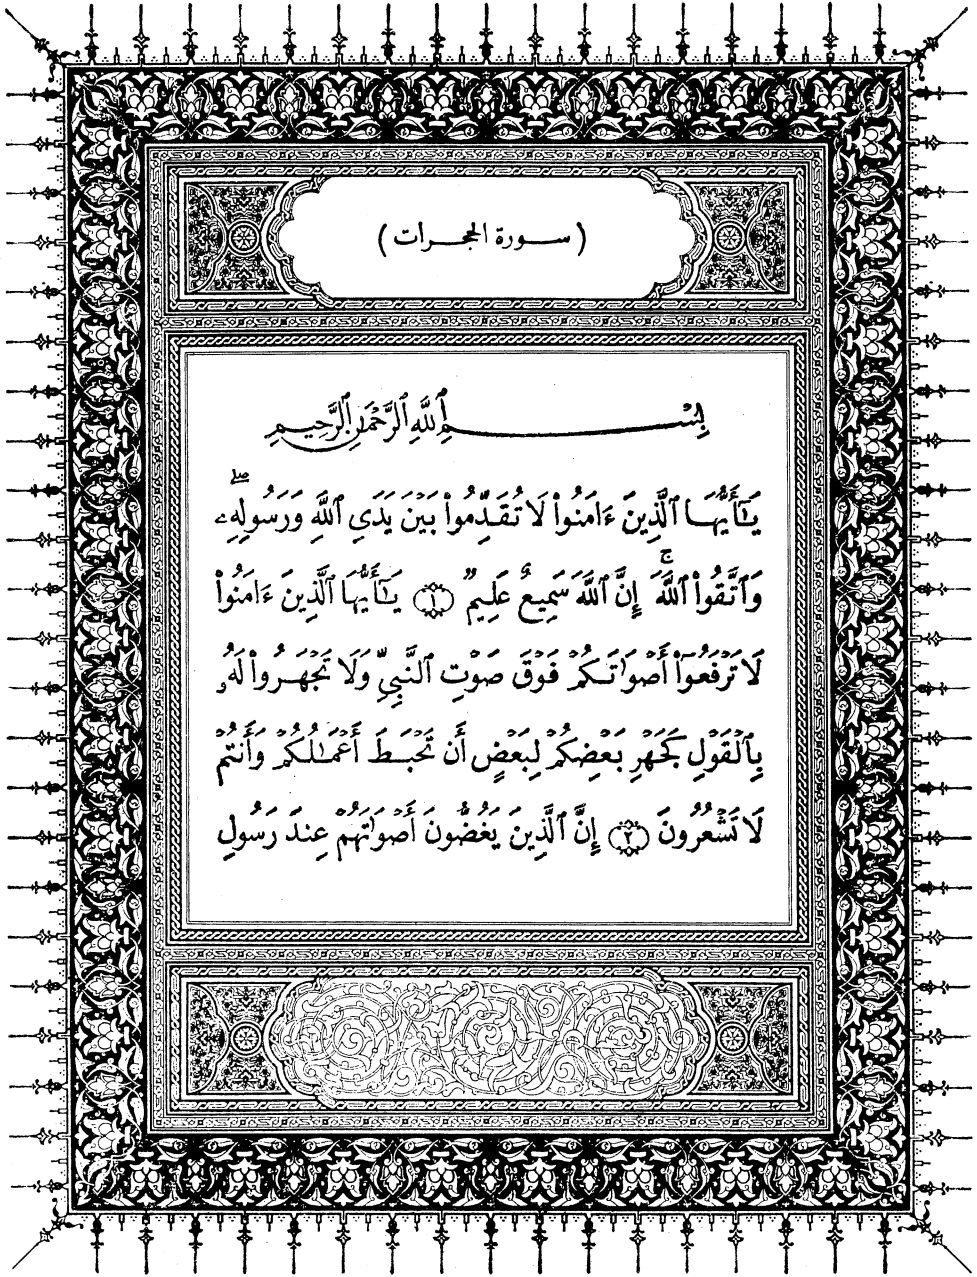 ( سورة الحجرات )
بِسْمِ ٱللَّهِ ٱلرَّحْمَٰنِ ٱلرَّحِيمِ
يَٰٓأَيُّهَا ٱلَّذِينَ ءَامَنُوا۟ لَا تُقَدِّمُوا۟ بَيْنَ يَدَىِ ٱللَّهِ وَرَسُولِهِۦ ۖ
وَٱتَّقُوا۟ ٱللَّهَ ۚ إِنَّ ٱللَّهَ سَمِيعٌ عَلِيمٌ ١ يَٰٓأَيُّهَا ٱلَّذِينَ ءَامَنُوا۟
لَا تَرْفَعُوٓا۟ أَصْوَٰتَكُمْ فَوْقَ صَوْتِ ٱلنَّبِىِّ وَلَا تَجْهَرُوا۟ لَهُۥ
بِٱلْقَوْلِ كَجَهْرِ بَعْضِكُمْ لِبَعْضٍ أَن تَحْبَطَ أَعْمَٰلُكُمْ وَأَنتُمْ
لَا تَشْعُرُونَ ٢ إِنَّ ٱلَّذِينَ يَغُضُّونَ أَصْوَٰتَهُمْ عِندَ رَسُولِ